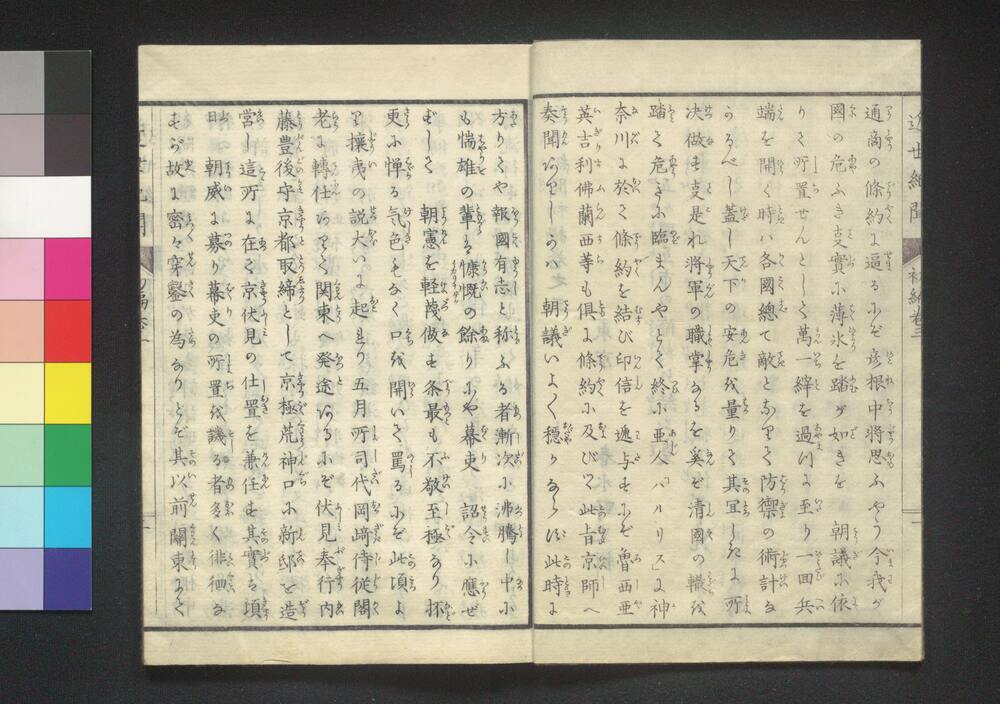 通商の條約に逼るにぞ彦根中將思ふやう今我が
國の危ふき支實に薄氷を踏が如きを　朝議に依
りて所置せんとして萬一繂を過つに至り一回兵
端を開く時ハ各國總て敵となりて防禦の術計な
かるべし蓋し天下の安危を量りて其宜しきに所
決做も支是れ將軍の職掌なるを奚ぞ清國の轍を
踏て危うに臨まんやとて終に亜人「ハルリス」に神
奈川に於て條約を結び印信を逓与すにぞ魯西亜
英吉利佛蘭西等も俱に條約に及びつ此旨京師へ
奏聞ありしかハ　朝議いよく穏かならず此時に
方りてや報國有志と称ふる者漸次に沸騰し中に
も惴雄の輩は慷慨の餘りにや幕吏　詔令に應ぜ
ずして　朝憲を軽蔑做す条最も不敬至極なり抔
更に憚る気色もなく口を開いて罵るにぞ此頃よ
り攘夷の説大いに起れり五月所司代岡﨑侍従閣
老に轉仕ありて関東へ発途あるにぞ伏見奉行内
藤豊後守京都取締として京極荒神口に新邸を造
営し這所に在て京伏見の仕置を兼任す其實は頃
日　朝威に募り幕吏の所置を譏る者多く徘徊な
すら故に密々穿鑿の為なりとぞ其以前關東にて
近世紀聞
初編巻二